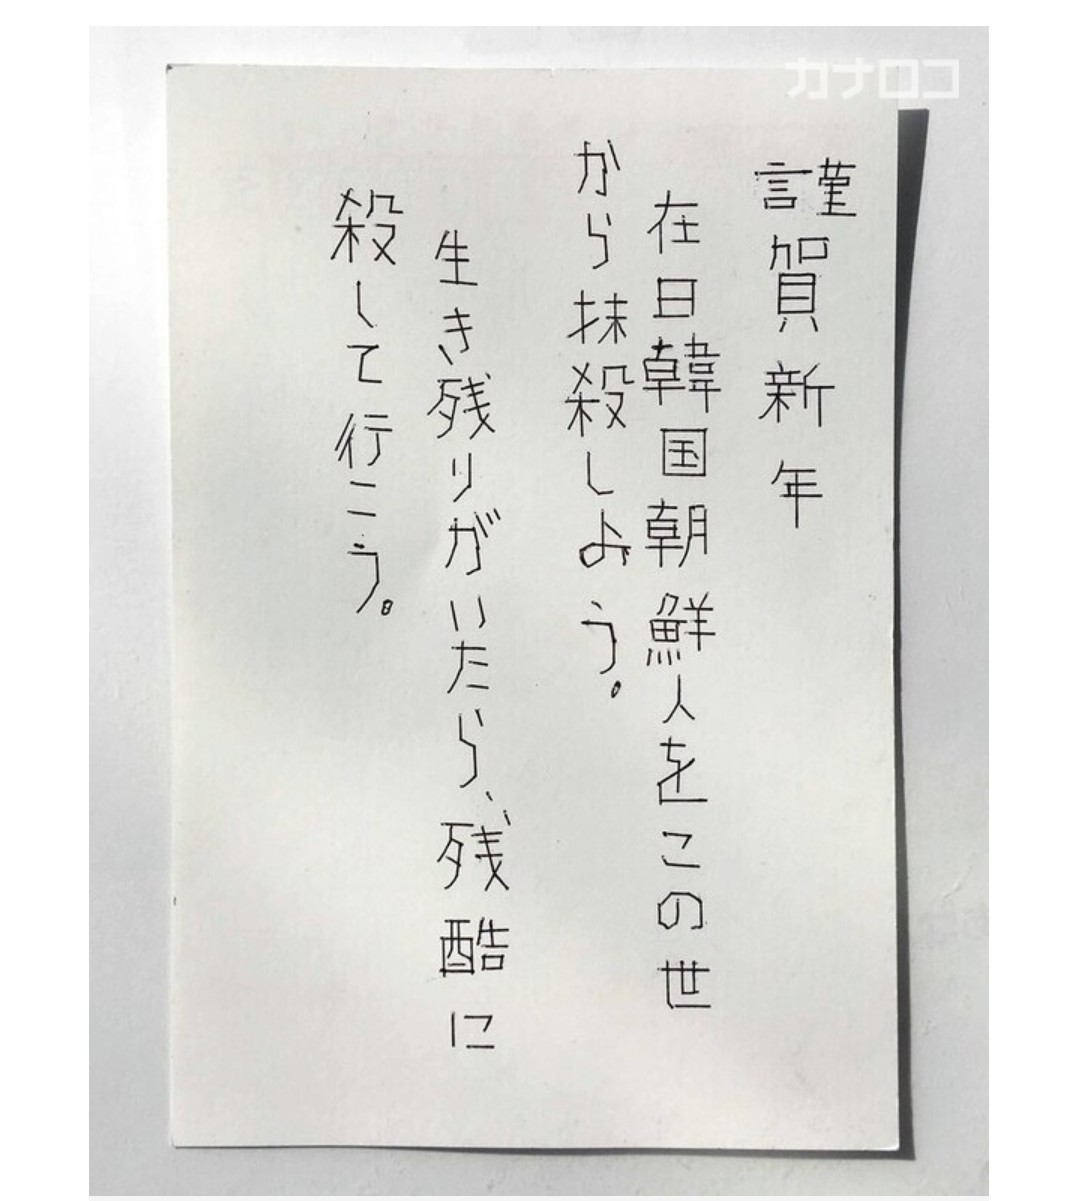 カナロコ
謹賀新年
在日韓国朝鮮人をこの世
から抹殺しよう。
生き残りがいたら、残酷に
殺して行こう。